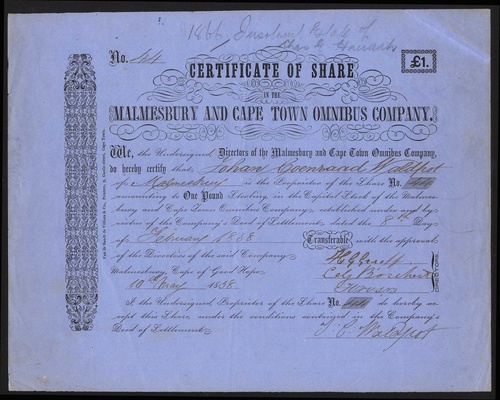 1866, Insolvent Estate of
No. 44
£1.
CERTIFICATE OF SHARE
IN THE
MALMESBURY AND CAPE TOWN OMNIBUS COMPANY.
We, the Undersigned Directors of the Malmesbury and Cape Town Omnibus Company,
do hereby certify that, Johan Coenraad Waldpot
of Malmesbury is the Proprietor of the Share No. 44
amounting to One Pound Sterling in the Capital Stock of the Malmes-
bury and Cape Town Omnibus Company, established under and by
virtue of the Company's Deed of Settlement, dated the 8th Day
of February 1858 Transferable with the approval
of the Directors of the said Company.
Malmesbury, Cape of Good Hope
10 May 1858
I the Undersigned Proprietor of the Share No. 44 do hereby ac-
cept this Share, under the conditions contained in the Company's
Deed of Settlement.
J C Waldpot
Van de Sandt de Villiers & Co., Printers, Cape Town.